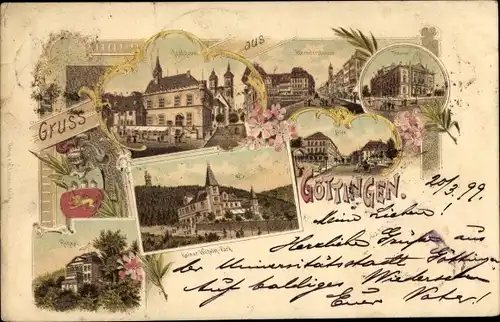 Gruss
aus
Rathhaus
Theater
Kaiser-Wilhelm-Park
GÖTTINGEN.
20/3.99.
Meine Lieben!
Herzliche Grüsse aus
der Universitätsstadt Göttingen
Auf baldiges Wiedersehen
Euer Vater!